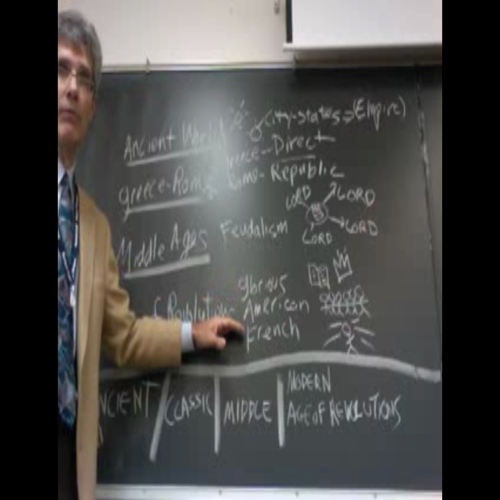 Ancient World city-states=(Empire)
Greece-Rome Direct
Republic
LORD LORD
Middle Ages Feudalism LORD
LORD
Glorious
Revolution American
French
ANCIENT CLASSIC MIDDLE MODERN
AGE OF REVOLUTIONS